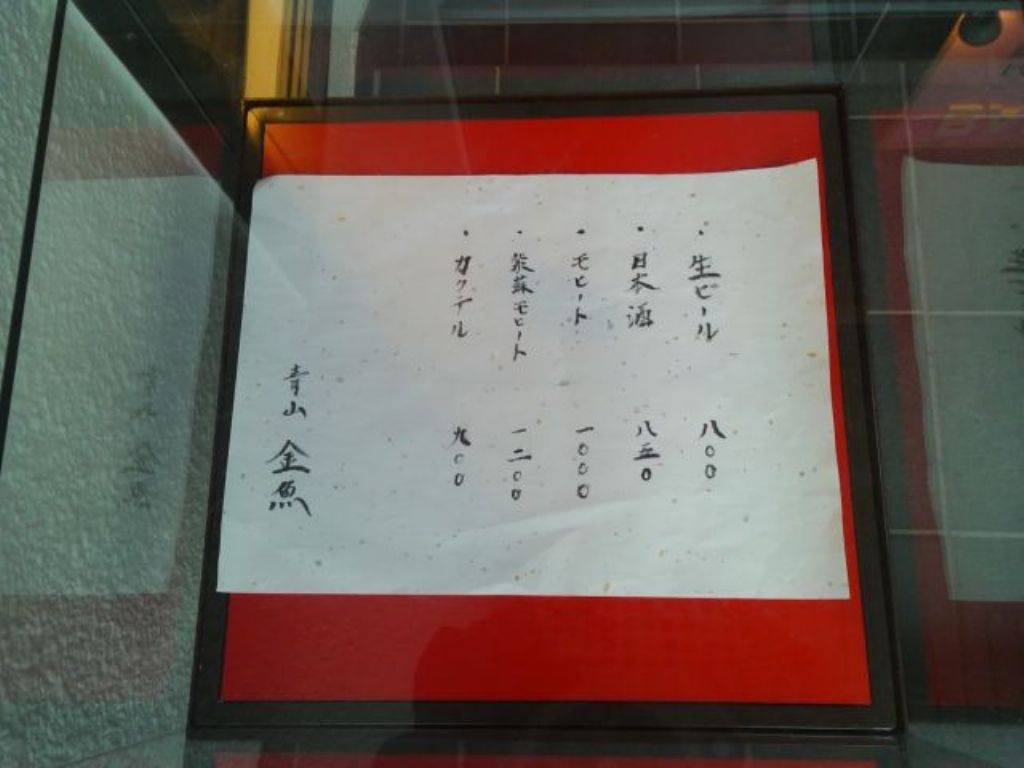 ・生ビール 八〇〇
・日本酒 八五〇
・モヒート 一〇〇〇
・紫蘇モヒート 一二〇〇
・カクテル 九〇〇
青山 金魚